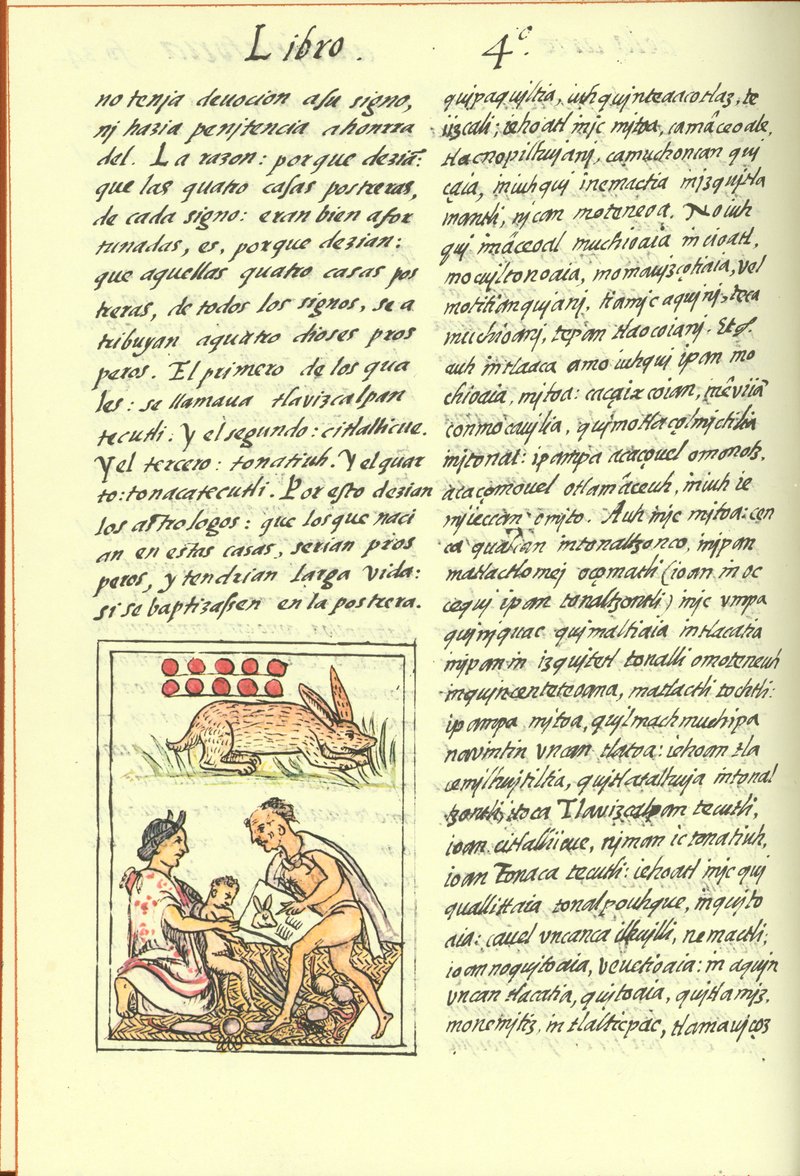 Libro. 4º.
no tenja deuocion asu signo,
nj hazia penjtencia ahonrra
del. La razon: porque dezian:
que las quatro casas postreras,
de cada signo: eran bien afor
tunadas, es, porque dezian:
que aquellas quatro casas pos
treras, de todos los signos, se a
tribuyan aquatro dioses pros
peros. El primero de los qua
les: se llamaua tlavizcalpan
tecutli. Y el segundo: citlallicue.
Y el tercero: tonatiuh. Y el quar
to: tonacatecutli. Por esto dezian
los astrologos: que los que naci
an en estas casas, serian pros
peros, y tendrian larga vida:
si se baptizassen en la postrera.
qujpaqujltia, iuh qujnteaacotlaz, te
izcali; iehoatl injc mjtoa, camâceoale,
tlacnopilhujanj, camuchoncan qui
çaia, in iuhqui inemactia mjzqujtla
mantli, njcan moteneoa. No iuh
qui imâceoal muchioaia in cioatl,
mocujltonoaia, momaujzçotiaia, vel
motitianqujanj, tiamjc aqujnj, teca
muchioanj, tepan tlaocoianj.
auh intlaca amo iuhqui ipan mo
chioaia, mjtoa: cacaix coian,
conmocaujlia, qujmotlaçolmjctilia
injtonal: ipampa acaçouel omonotz,
acaçomouel otlamâceuh, in iuh ie
mjieccan omjto. Auh injc mjtoa: cen
ca qualcan intonaltzonco, injpan
matlactlomej oçomatli (ioan in oc
cequj ipan tonaltzontli) injc vmpa
qujnjquac qujmaltiaia intlacatia
injpanin izqujtetl tonalli omoteneuh
inqujncenteteoana, matlactli tochtli:
ipampa mjtoa, qujlmach muchipa
navintin vncan tlatoa: iehoan tla
cemjlhujtiltia, qujtlatalhuja intonal
tzontli, itoca Tlavizcalpan tecutli,
ioan citlallicue, njman ic tonatiuh,
ioan Tonaca tecutli: iehoatl injc quj
quallittaia tonalpouhque, inqujto
aia: cauel vncanca ilhujlli, nemactli;
ioan noqujtoaia, veuetioaia: in aqujn
vncan tlacatia, qujtoaia, qujtlamjz,
monemjtiz in tlalticpac, tlamaujçoz